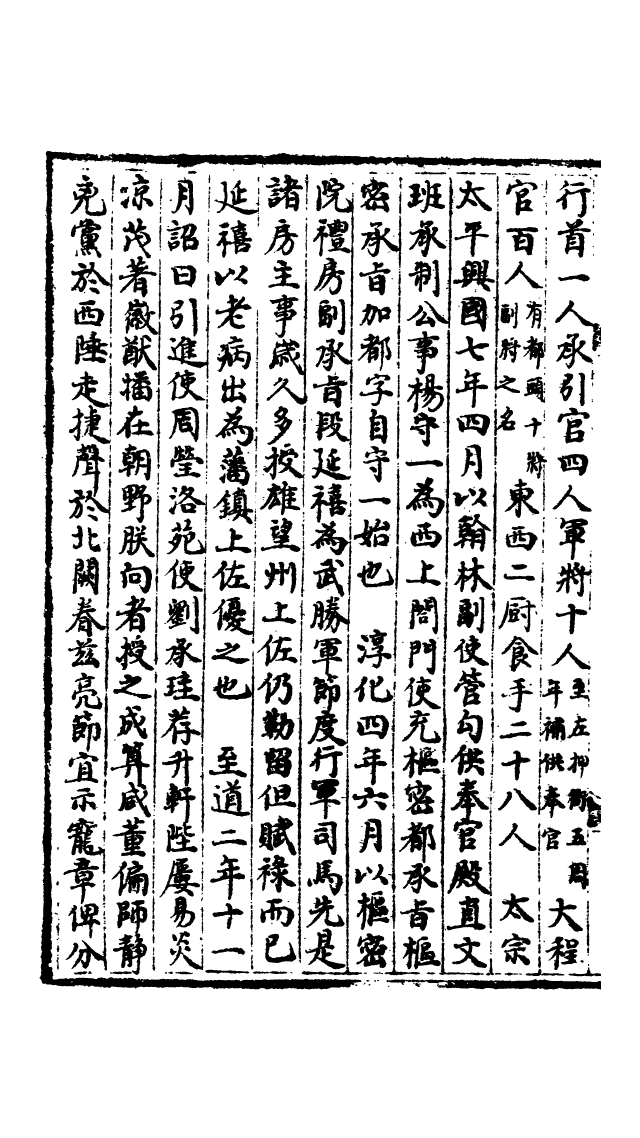 行首一人承引官四人軍將十人至左押衙五周年補供奉官大程
官百人有都頭十將副將之名東西二厨食手二十八人　太宗
太平興國七年四月以翰林副使管勾供奉官殿直文
班承制公事楊守一為西上閤門使充樞密都承旨樞
密承旨加都字自守一始也　淳化四年六月以樞密
院禮房副承旨段延禧為武勝軍節度行軍司馬先是
諸房主事歲久多授雄望州上佐仍勒留但賦祿而已
延禧以老病出為藩鎮上佐優之也　至道二年十一
月詔曰引進使周瑩洛苑使劉承珪荐升軒陛屢易炎
凉茂著徽猷播在朝野朕向者授之成算咸董偏師靜
兇黨於西陲走捷聲於北闕眷茲亮節宜示寵章俾分